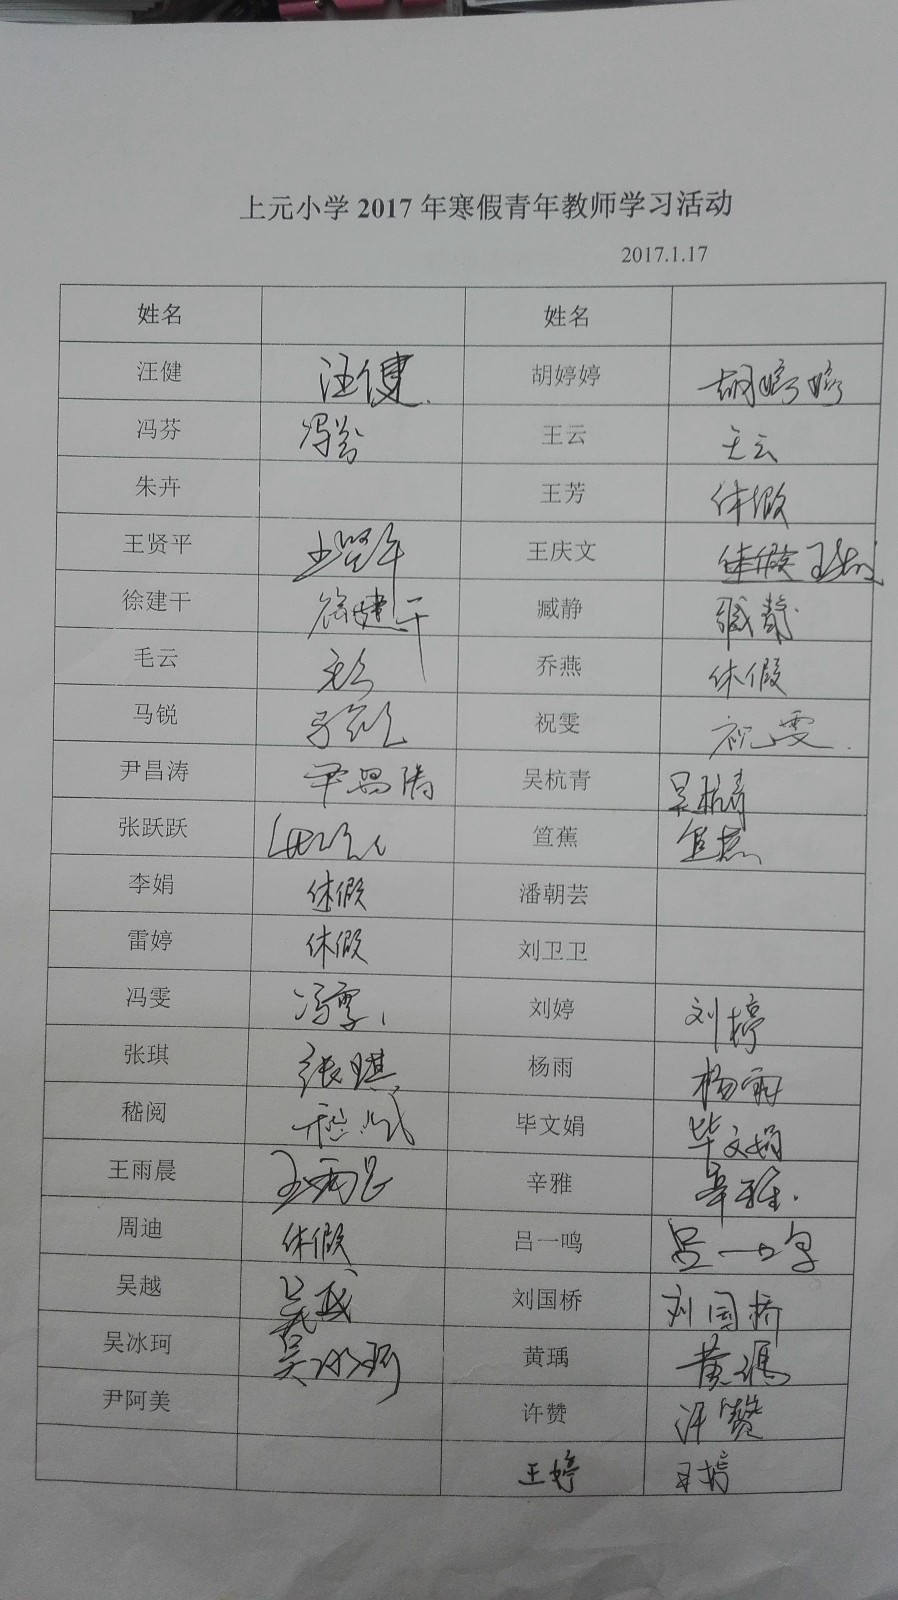 上元小学 2017 年寒假青年教师学习活动
2017.1.17
姓名 姓名
汪健 汪健 胡婷婷 胡婷婷
冯芬 冯芬 王云 王云
朱卉 王芳 休假
王贤平 王贤平 王庆文 休假
徐建干 徐建干 臧静 臧静
毛云 毛云 乔燕 休假
马锐 马锐 祝雯 祝雯
尹昌涛 尹昌涛 吴杭青 吴杭青
张跃跃 笪蕉 笪蕉
李娟 休假 潘朝芸
雷婷 休假 刘卫卫
冯雯 冯雯 刘婷 刘婷
张琪 张琪 杨雨 杨雨
嵇阅 嵇阅 毕文娟 毕文娟
王雨晨 王雨晨 辛雅 辛雅
周迪 休假 吕一鸣 吕一鸣
吴越 吴越 刘国桥 刘国桥
吴冰珂 吴冰珂 黄瑀 黄瑀
尹阿美 许赞 许赞
王婷 王婷